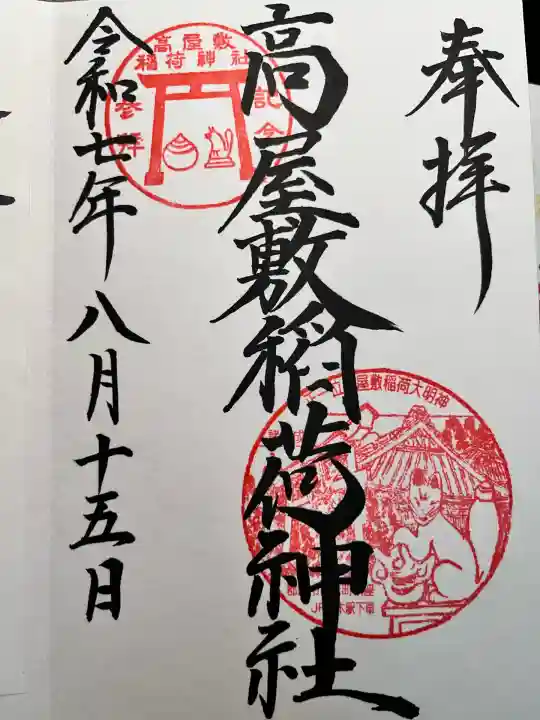 奉拝
高屋敷稲荷神社
令和七年八月十五日
高屋敷
稲荷神社
参拝
記念
屋敷稲荷大明神